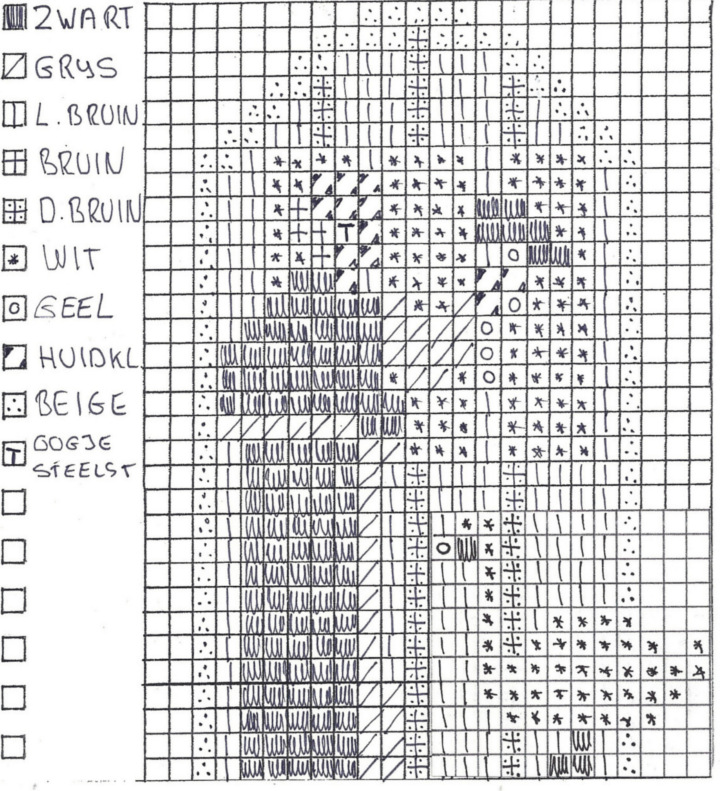 ZWART
GRYS
L.BRUIN
BRUIN
D.BRUIN
WIT
GEEL
HUIDKL.
BEIGE
T OOGJE
STEELST
T